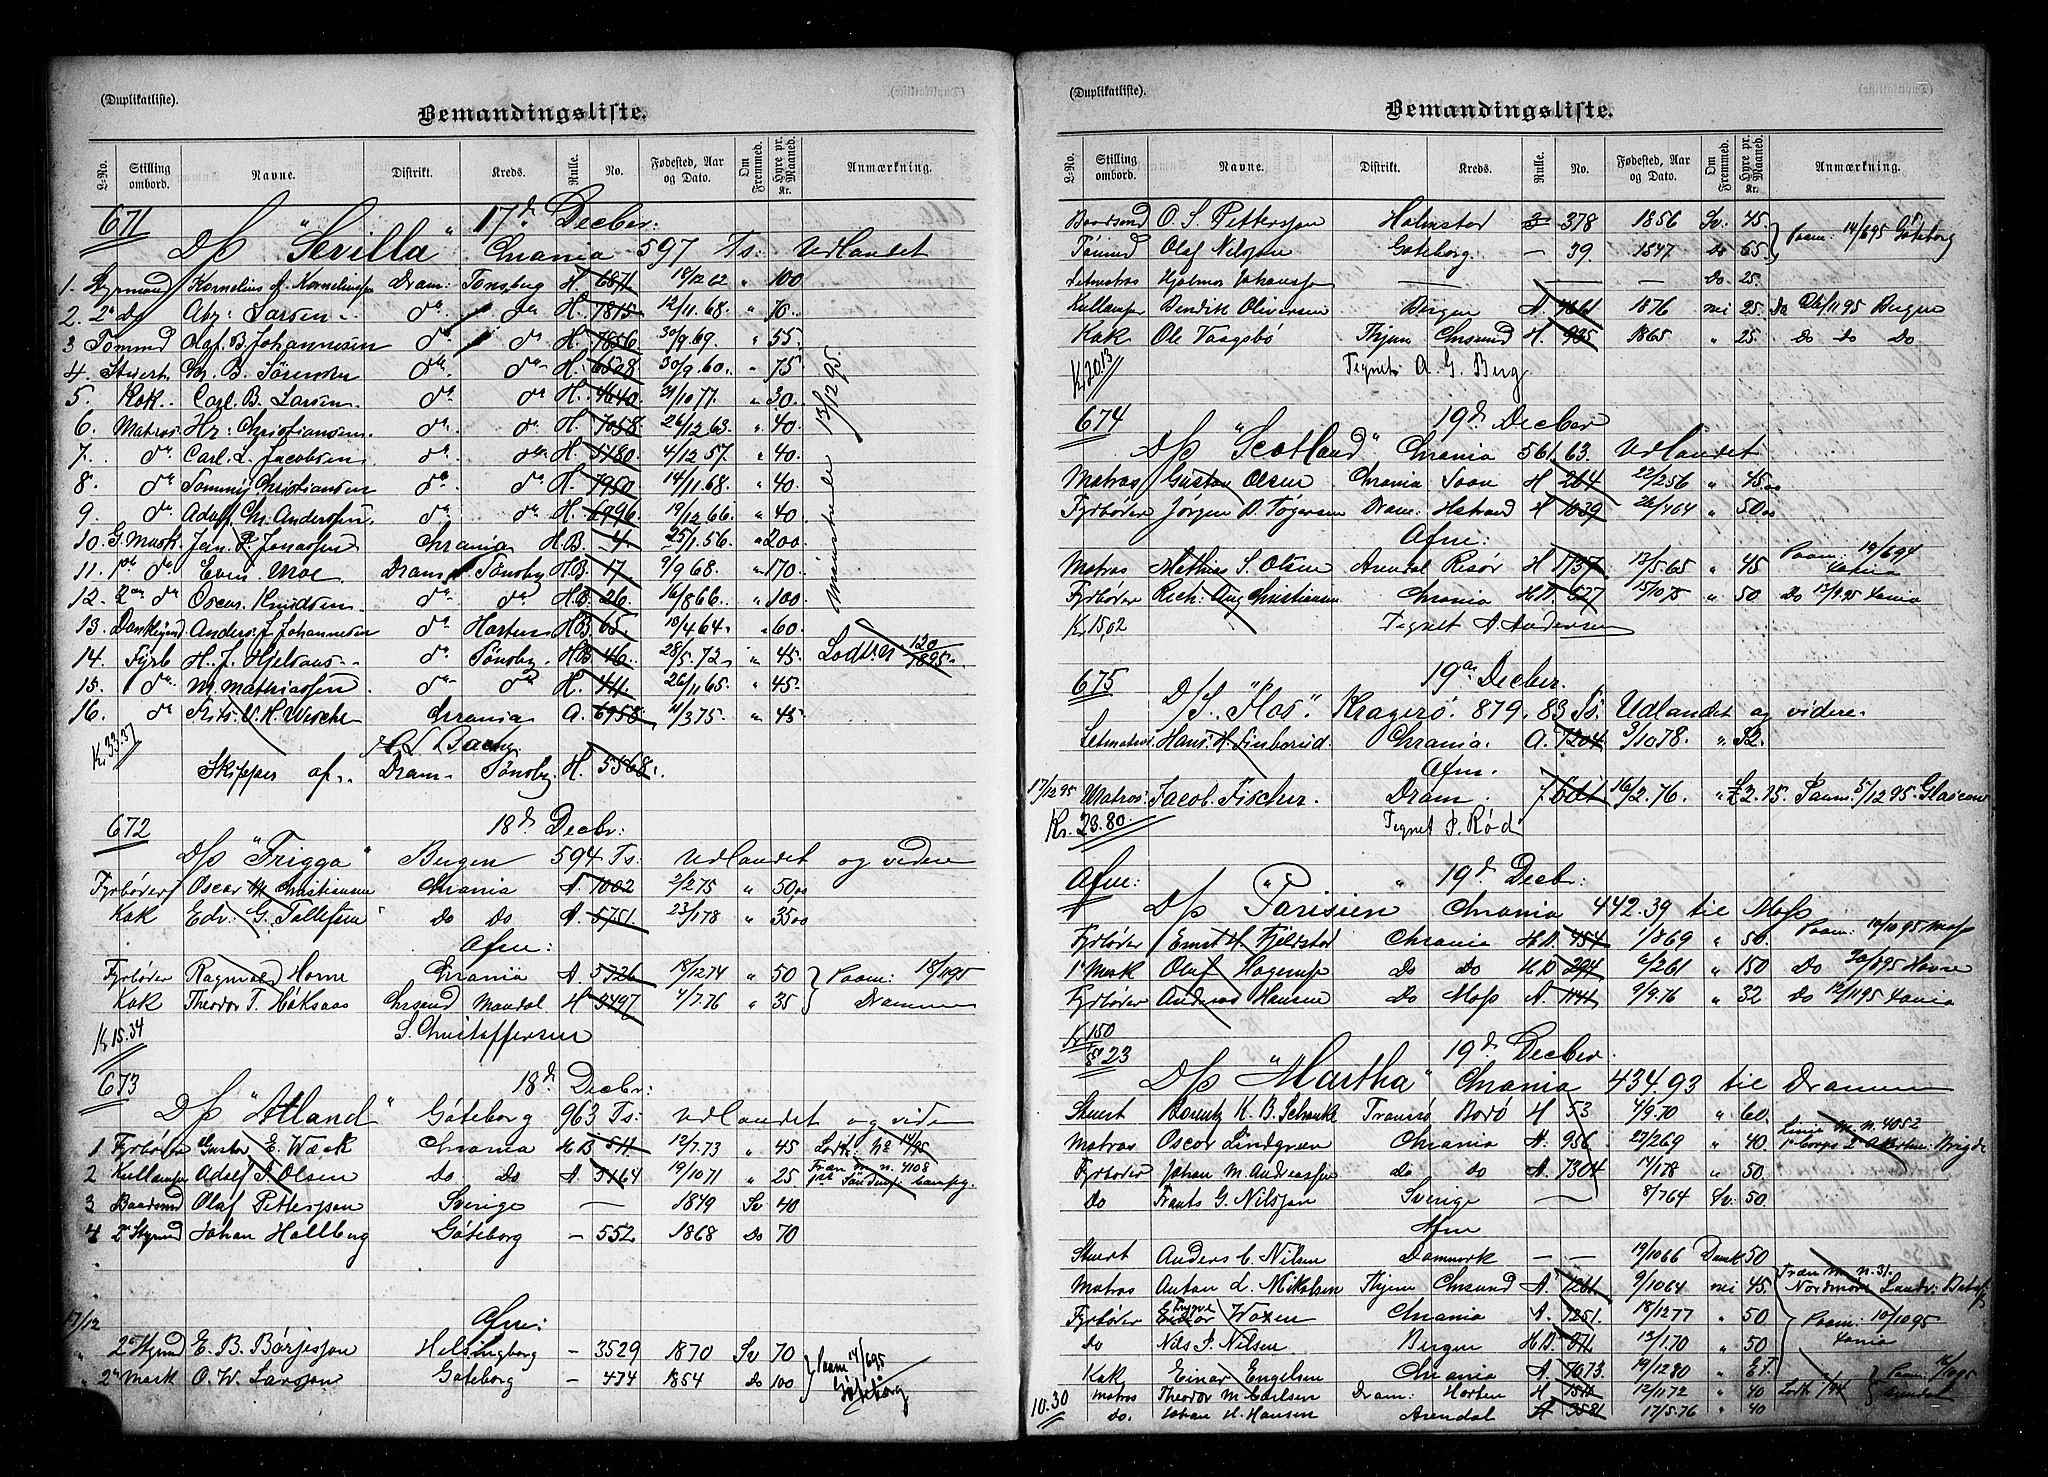 (Duplikatliste).
Bemandingsliste.
L-No. Stilling ombord. Navne. Distrikt. Kreds. Rulle. No. Fødested, Aar og Dato. Om Fremmed. Hyre pr. Maaned. Kr. Anmærkning.
671 17d Decber:
D/S "Sevilla" Chrania 597 Ts: Udlandet
1. Styrmand Kornelius A. Korneliussen Dram: Tønsberg H. 6871 18/12 62 " 100
2. 2n Do Aby: Larsen da da H. 7815 12/11.68. " 70
3 Tømmd Olaf. B. Johannesen da da H. 7856 30/9.69. " 55
4. Stuert B. Sørensen da da H. 6508 30/9.60. " 75
5. Kok Carl. B. Larsen da da H. 4640 31/10 77 " 30
6. Matros Hr: Christiansen da da H. 7058 26/12 63 " 40
7. da Carl. L. Jacobsen da da H. 5180 4/12 57. " 40
8. da Tommy Christiansen da da H. 7950 14/11.68. " 40
9. da Adolf. Chr. Anderssen da da H. 6996 19/12 66. " 40
10. G. Mask. Jan. P. Jonassen Chrania H.B. 4 25/1.56. " 200
11. 1ste da Even. Moe Dram Tønsby H.B. 17 9/9 68. " 170
12. 2den da Oscar. Knudsen da da H.B. 26 16/8 66. " 100
13. Donkeymd Anders. J. Johannesen da Horten H.B. 65. 10/4 64. " 60
14. Fyrb H. J. Hjelsaas da Tønsby. H.B. 46. 28/5.72 " 45 Lodtnr 120/1895
15. da M. Mathiassen da da H. 411. 26/11 65. " 45
16. da Frits. V. H. Wesche Chrania A. 6958 11/3 75. " 45
mønstrede 13/12 95.
Kr. 33.37
L. Bache
Skipper af Dram Tønsby. H. 5568.
672 18d Decbr:
D/S "Frigga" Bergen 594 Ts: Udlandet og videre
Fyrbøder Oscar M Christiansen Chrania A. 7002 2/2 75 " 50 00
Kok Edv: G. Tollefsen Do Do A 5751 23/1 78 " 35 00
Afm:
Fyrbøder Ragnvald Horne Chrania A. 5726 18/12 74 " 50 Paam: 18/11 95
Kok Theodor T. Høksaas Chrsand Mandal H 3497 4/7.76 " 35 Drammen
Kr 15.34 S. Christoffersen
673 18d Decbr:
D/S "Atland" Göteborg 963 Ts: Udlandet og videre
1 Fyrbøder Gustav E. Wæck Chrania H.B 511 12/7.73 " 45 Lodt: No 14/95
2 Kullemper Adolf J. Olsen Do Do A 5464 19/10 71 " 25 Træn m. n. 4108
3 Baadsmd Olaf Pettersson Sverige — 1849 Sv 40
4 2 Styrmd Johan Hallberg Göteborg – 552 1868 Do 70
17/12 Afm:
" 2n Styrmd E. B. Børjesson Helsingborg – 3529 1870 Sv 70 Paam 14/6 95
" 2n Mask O. W. Larsson Göteborg – 474 1854 Do 100 Göteborg
(Duplikatliste).
Bemandingsliste.
L-No. Stilling ombord. Navne. Distrikt. Kreds. Rulle. No. Fødested, Aar og Dato. Om Fremmed. Hyre pr. Maaned. Kr. Anmærkning.
Baadsmd O. S. Pettersson Halmstad 3 378 1856 Sv. 45.
Tømmd Olaf Nilsson Göteborg. – 39 1847 Do 65 Paam: 14/6 95 Göteborg
Letmatros Hjalmar Johansson — Do 25.
Kullemper Bendik Oliversen Bergen A. 4661 1876 nei 25. Do 26/11 95 Bergen
Kok Ole Vaagsbø Thjem Chrsund H. 905 1865 " 25. Do Do Do
Kr 20.13 Tegnet A. G. Berg
674 19d Decber
D/S "Scotland" Chrania 561.63. Udlandet
Matros Gustav Olsen Chrania Soon H 204 22/2 56 " 45 00
Fyrbøder Jørgen D. Tøgersen Dram: Hstrand H 1039 26/4 64 " 50 00
Afm:
Matros Mathias S. Olsen Arendal Risør H 1737 13/5.65 " 45 Paam: 19/6 94 Xania
Fyrbøder Rich: Aug Christiansen Chrania H.B. 527 15/10 75 " 50 Do 13/9 95 Xania
Kr 15.02 Tegnet A. Andersen
675 19de Decber.
D/S. "Hos". Kragerø. 879.83 Ts. Udlandet og videre
Letmatros Hans. H. Finborud. Chrania. A. 7204 3/10 78. " 32.
Afm.
17/12 95 Matros. Jacob. Fischer. Dram. 16/2.76. " £2.15. Paam. 5/12 95. Glascow
Kr. 23.80 Tegnet P. Rød
Afm: " 19d Decbr:
D/S "Parisien Chrania 442.39 til Moss
Fyrbøder Ernst H. Fjeldstad Chrania H.B. 454 1/8 69 " 50. Paam: 12/10 95 Moss
1n Mask Olaf Hagerup Do Do H.B 294 6/2 61 " 150 Do 30/8 95 Havre
Fyrbøder Andreas Hansen Do Moss A. 1144 9/9.76 " 32 Do 12/11 95 Xania
Kr 1.50
23 19d Decber.
D/S "Martha" Chrania 434.93 til Drammen
Stuert Lorentz K. B. Schanke Tromsø Bodø H 53 4/9.70 " 60.
Matros Oscar Lindgren Chrania A. 956 23/2 69 " 40. Linie m. n. 4052
Fyrbøder Johan M. Andreassen do do A. 7304 14/1 78 " 50.
Do Frants G. Nilsson Sverige — 8/7 64 Sv. 50.
Afm
Stuert Anders C. Nilsen Danmark — — 19/10 66 Dansk 50
Matros Anton L. Nikolsen Thjem Chrsund A 1261 9/10 64 nei 45 Træn m. n. 31.
Fyrbøder Trygve Waxen Chrania A. 7251 18/12 77 " 50 Paam: 10/10 95
Do Nils P. Nilsen Bergen H.B. 871 13/1.70 " 50 Xania
Kok Einar Engelsen Chrania A. 7073 19/12 80 "
Matros Theodor M. Carlsen Dram: Horten H 12/11 72 " 40 Arendal
10.30 do. Johan H. Hansen Arendal H 3581 17/5.76 " 40